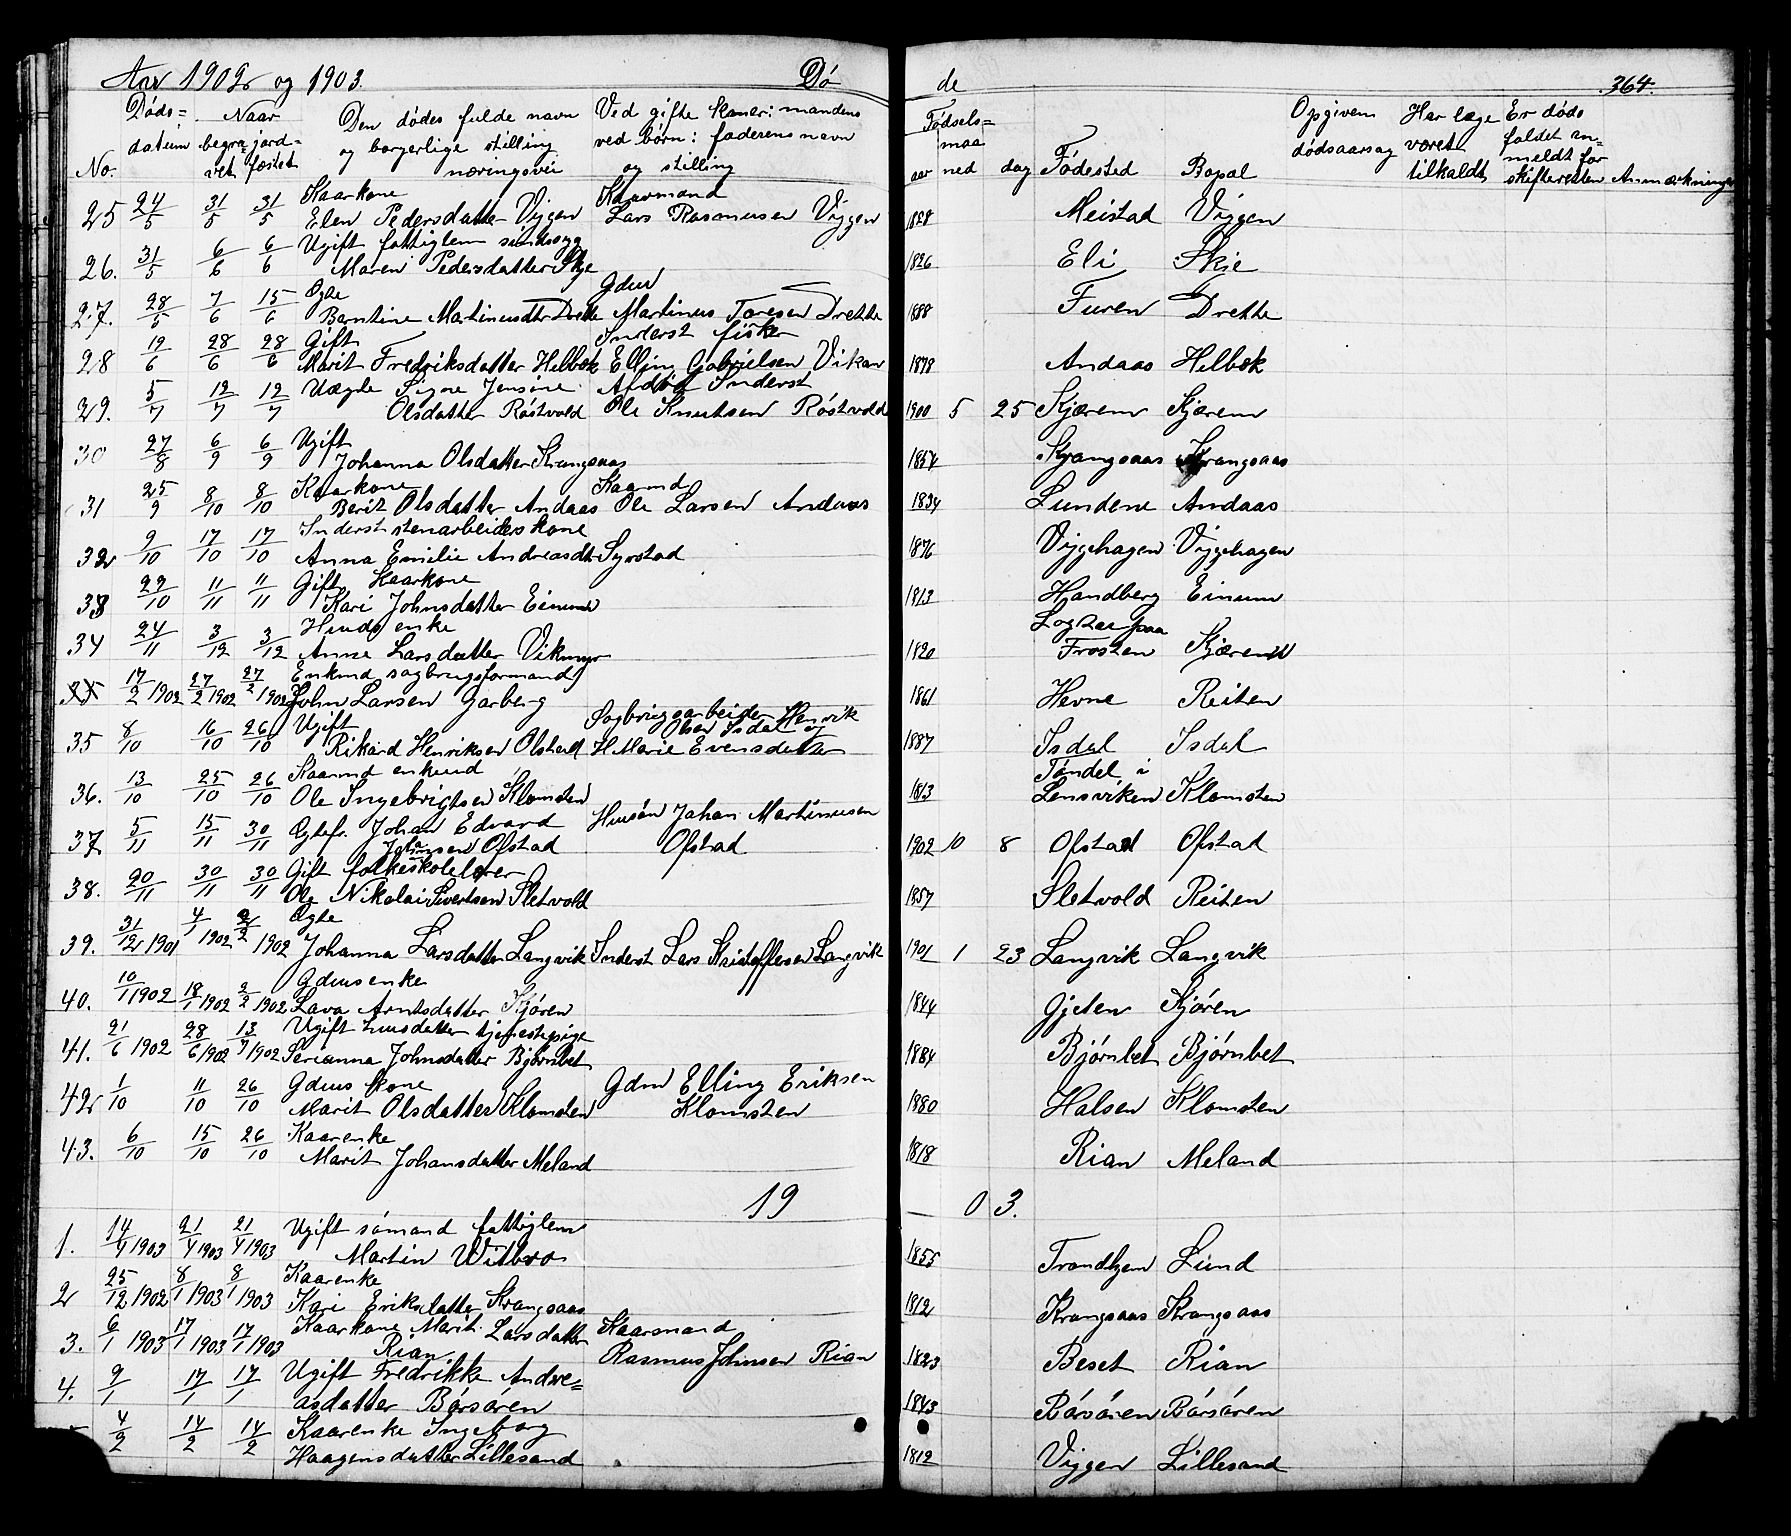 Aar 1902 og 1903. Dø de 364.
No. Døds= datum Naar begra= vet jord= fæstet Den dødes fulde navn og borgerlige stilling næringsvei Ved gifte koner: mandens ved børn: faderens navn og stilling Fødsels= aar maa ned dag Fødested Bopæl Opgiven dødsaarsag Har læge været tilkaldt Er døds faldet an= meldt for skifteretten Anmærkninger
Kaarkone Kaarmand
25 24/5 31/5 31/5 Elen Pedersdatter Viggen Lars Rasmusen Viggen 1828 Meistad Viggen
Ugift fattiglem sindssyg
26. 31/5 6/6 6/6 Maren Pedersdatter Skje 1826 Eli Skie
Ægte Gdm
27. 28/5 7/6 15/6 Berntine Martinusdtr Drette Martinus Toresen Drette 1888 Furen Drette
Gift Inderst fisker
28 19/6 28/6 28/6 Marit Fredriksdatter Helbek Elling Gabrielsen Vikan 1878 Andaas Helbek
Uægte Signe Jensine Afdød Inderst
29. 5/7 12/7 12/7 Olsdatter Röstvold Ole Knutsen Röstvold 1900 5 25 Skjærem Skjærem
Ugift
30 27/8 6/9 6/9 Johanna Olsdatter Krangsaas 1854 Krangsaas Krangsaas
Kaarkone Kaarmd
31 25/9 8/10 8/10 Berit Olsdatter Andaas Ole Larsen Andaas 1834 Lundene Andaas
Inderst stenarbeiders kone
32 9/10 17/10 17/10 Anna Emilie Andreasdtr Syrstad 1876 Viggehagen Viggehagen
Gift Kaarkone
33 22/10 11/11 11/11 Kari Johnsdatter Einum 1813 Handberg Einum
Husds enke
34 24/11 3/12 3/12 Anne Larsdatter Vikmyr 1820 Frosten Skjærem
Enkmd sagbrugsformand
35 17/2 1902 27/2 1902 27/2 1902 John Larsen Garberg 1861 Hevne Reiten
Ugift Sagbrugsarbeider Henrik Olsen Isdal og
35 8/10 16/10 26/10 Rikard Henriksen Olstad H Marie Evensdatter 1887 Isdal Isdal
Kaarmd enkemd Tøndel i
36. 13/10 25/10 26/10 Ole Ingebrigtsen Klomsten 1813 Lensviken Klomsten
Ægtef. Johan Edvard Husm Johan Martinusen
37 5/11 15/11 30/11 Johansen Ofstad Ofstad 1902 10 8 Ofstad Ofstad
Gift folkeskolelærer
38. 20/11 30/11 30/11 Ole Nikolai Sivertsen Sletvold 1857 Sletvold Reiten
Ægte
39. 31/12 1901 4/1 1902 2/2 1902 Johanna Larsdatter Langvik Inderst Lars Kristoffersen Langvik 1901 1 23 Langvik Langvik
Gdmsenke
40. 10/1 1902 18/1 1902 2/2 1902 Lava Arntsdatter Kjøren 1844 Gjeten Kjøren
Ugift husdatter tjenestepige
41. 21/6 1902 28/6 1902 13/7 1902 Serianna Johnsdatter Bjørnbet 1884 Bjørnbet Bjørnbet
Gdms kone Gdm Elling Eriksen
42 1/10 11/10 26/10 Marit Olsdatter Klomsten Klomsten 1880 Halsen Klomsten
Kaarenke
43. 6/10 15/10 26/10 Marit Johansdatter Meland 1818 Rian Meland
19 03.
Ugift sömand fattiglem
1. 14/4 1903 21/4 1903 21/4 1903 Martin Witbro 1855 Trondhjem Lund
Kaarenke
2 25/12 1902 8/1 1903 8/1 1903 Kari Eriksdatter Krangsaas 1812 Krangsaas Krangsaas
Kaarkone Marit Larsdatter Kaarmand
3. 6/1 1903 17/1 1903 17/1 1903 Rian Rasmus Johnsen Rian 1823 Beset Rian
Ugift Fredrikke Andre=
4. 9/1 17/1 17/1 asdatter Börsören 1843 Börsören Börsören
4/2 14/2 14/2 Kaarenke Ingeborg
Haagensdatter Lillesand 1812 Viggen Lillesand